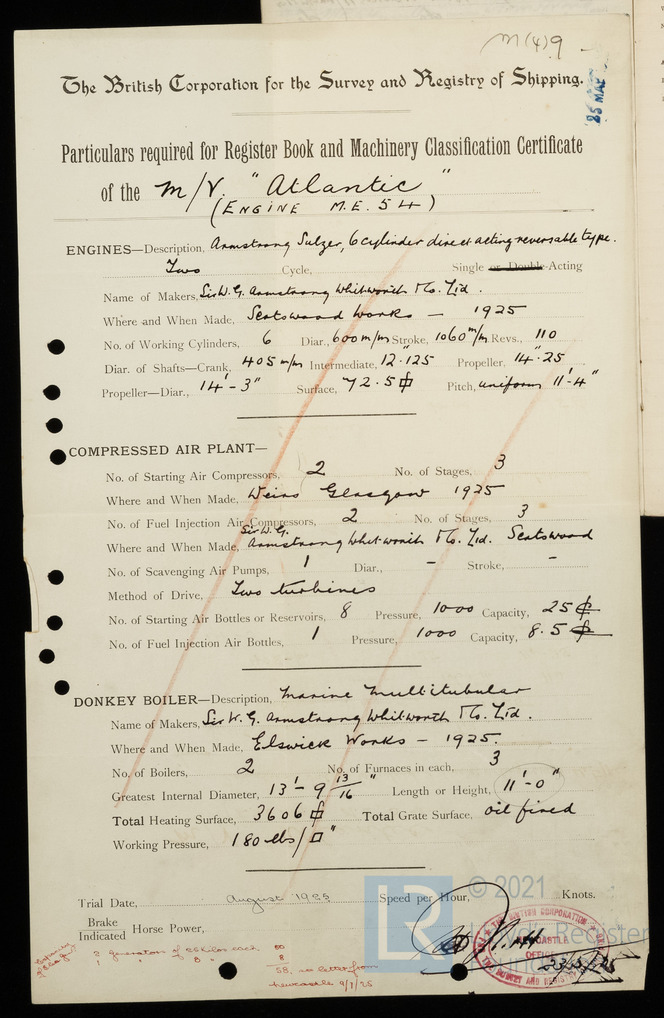 M(4)9 -
The British Corporation for the Survey and Registry of Shipping.
25 MAR
Particulars required for Register Book and Machinery Classification Certificate
of the M/V. "Atlantic"
(ENGINE M.E. 54)
ENGINES—Description, Armstrong Sulzer, 6 cylinder direct acting reversable type.
Two Cycle, Single or Double-Acting
Name of Makers, Sir W. G. Armstrong Whitworth & Co. Ltd.
Where and When Made, Scotswood Works – 1925
No. of Working Cylinders, 6 Diar., 600 m/m Stroke, 1060 m/m Revs., 110
Diar. of Shafts—Crank, 405 m/m Intermediate, 12.125 Propeller, 14".25
Propeller—Diar., 14'-3" Surface, 72.5 ф Pitch, uniform 11'-4"
COMPRESSED AIR PLANT—
No. of Starting Air Compressors, 2 No. of Stages, 3
Where and When Made, Weirs Glasgow 1925
No. of Fuel Injection Air Compressors, 2 No. of Stages, 3
Where and When Made, Sir W. G. Armstrong Whitworth & Co. Ltd. Scotswood
No. of Scavenging Air Pumps, 1 Diar., – Stroke, –
Method of Drive, Two turbines
No. of Starting Air Bottles or Reservoirs, 8 Pressure, 1000 Capacity, 25 ф
No. of Fuel Injection Air Bottles, 1 Pressure, 1000 Capacity, 8.5 ф
DONKEY BOILER—Description, Marine Multitubular
Name of Makers, Sir W. G. Armstrong Whitworth & Co. Ltd.
Where and When Made, Elswick Works – 1925.
No. of Boilers, 2 No. of Furnaces in each, 3
Greatest Internal Diameter, 13'-9 13/16" Length or Height, 11'-0"
Total Heating Surface, 3606 ф Total Grate Surface, oil fired
Working Pressure, 180 lbs/□"
Trial Date, August 1925 Speed per Hour, Knots.
Brake
Indicated Horse Power,
2 generators of 25 Kilos each 50
1 " " 8 " 8
58, see letter from
Newcastle 9/7/25
THE BRITISH CORPORATION
NEWCASTLE
OFFICE
SURVEY AND REGISTRY
LR
© 2021
Lloyd's Register
Foundation